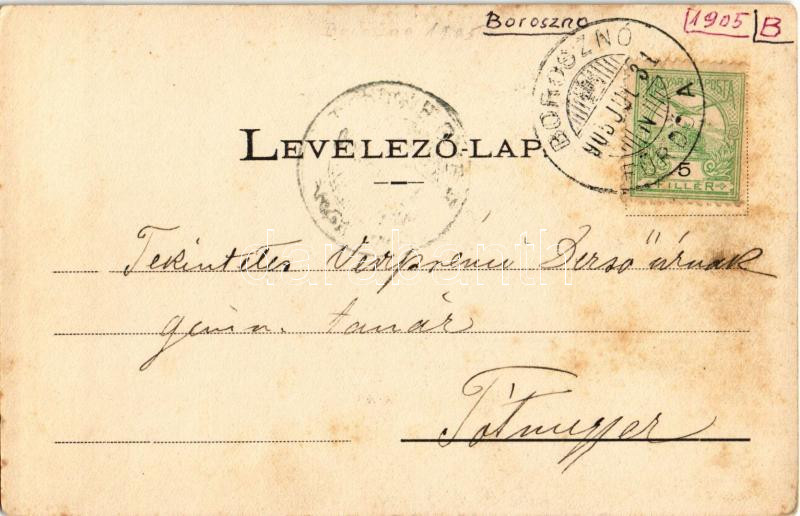 Boroszno 1905 B
BOROSZNÓ
905 JUL 31
MAGYAR POSTA
5
FILLÉR
LEVELEZŐ-LAP.
Tekintetes Veszprémi Dezső úrnak
gimn. tanár
Tótmegyer
darabanth